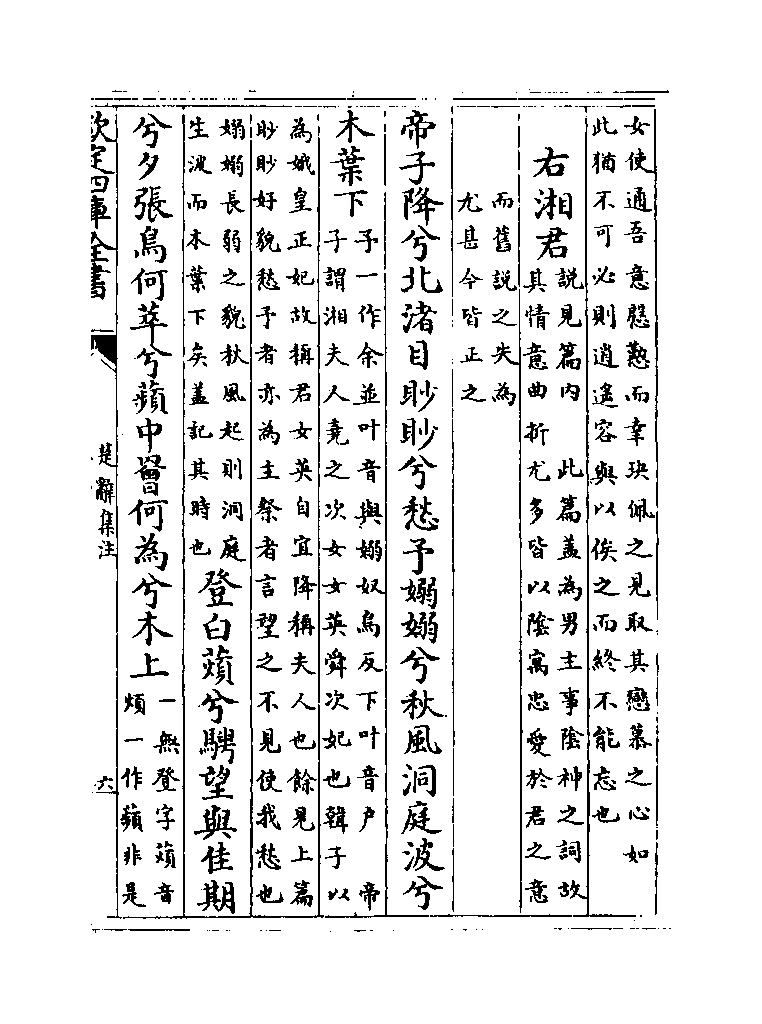 女使通吾意慇懃而幸玦佩之見取其戀慕之心如
此猶不可必則逍遙容與以俟之而終不能忘也
右湘君
說見篇内 此篇蓋為男主事陰神之詞故
其情意曲折尤多皆以陰寓忠愛於君之意
而舊說之失為
尤甚今皆正之
帝子降兮北渚目眇眇兮愁予嫋嫋兮秋風洞庭波兮
木葉下
予一作余並叶音與嫋奴鳥反下叶音戶 帝
子謂湘夫人堯之次女女英舜次妃也韓子以
為娥皇正妃故稱君女英自宜降稱夫人也餘見上篇
眇眇好貌愁予者亦為主祭者言望之不見使我愁也
嫋嫋長弱之貌秋風起則洞庭
生波而木葉下矣蓋記其時也
登白薠兮騁望與佳期
兮夕張鳥何萃兮蘋中罾何為兮木上
一無登字薠音
煩一作蘋非是
欽定四庫全書
楚辭集注
六